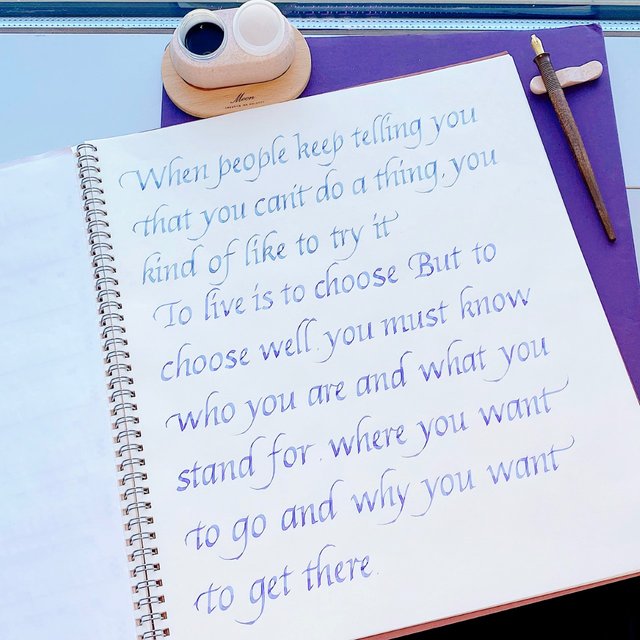 Moon
When people keep telling you
that you can't do a thing, you
kind of like to try it
To live is to choose But to
choose well, you must know
who you are and what you
stand for. where you want
to go and why you want
to get there.